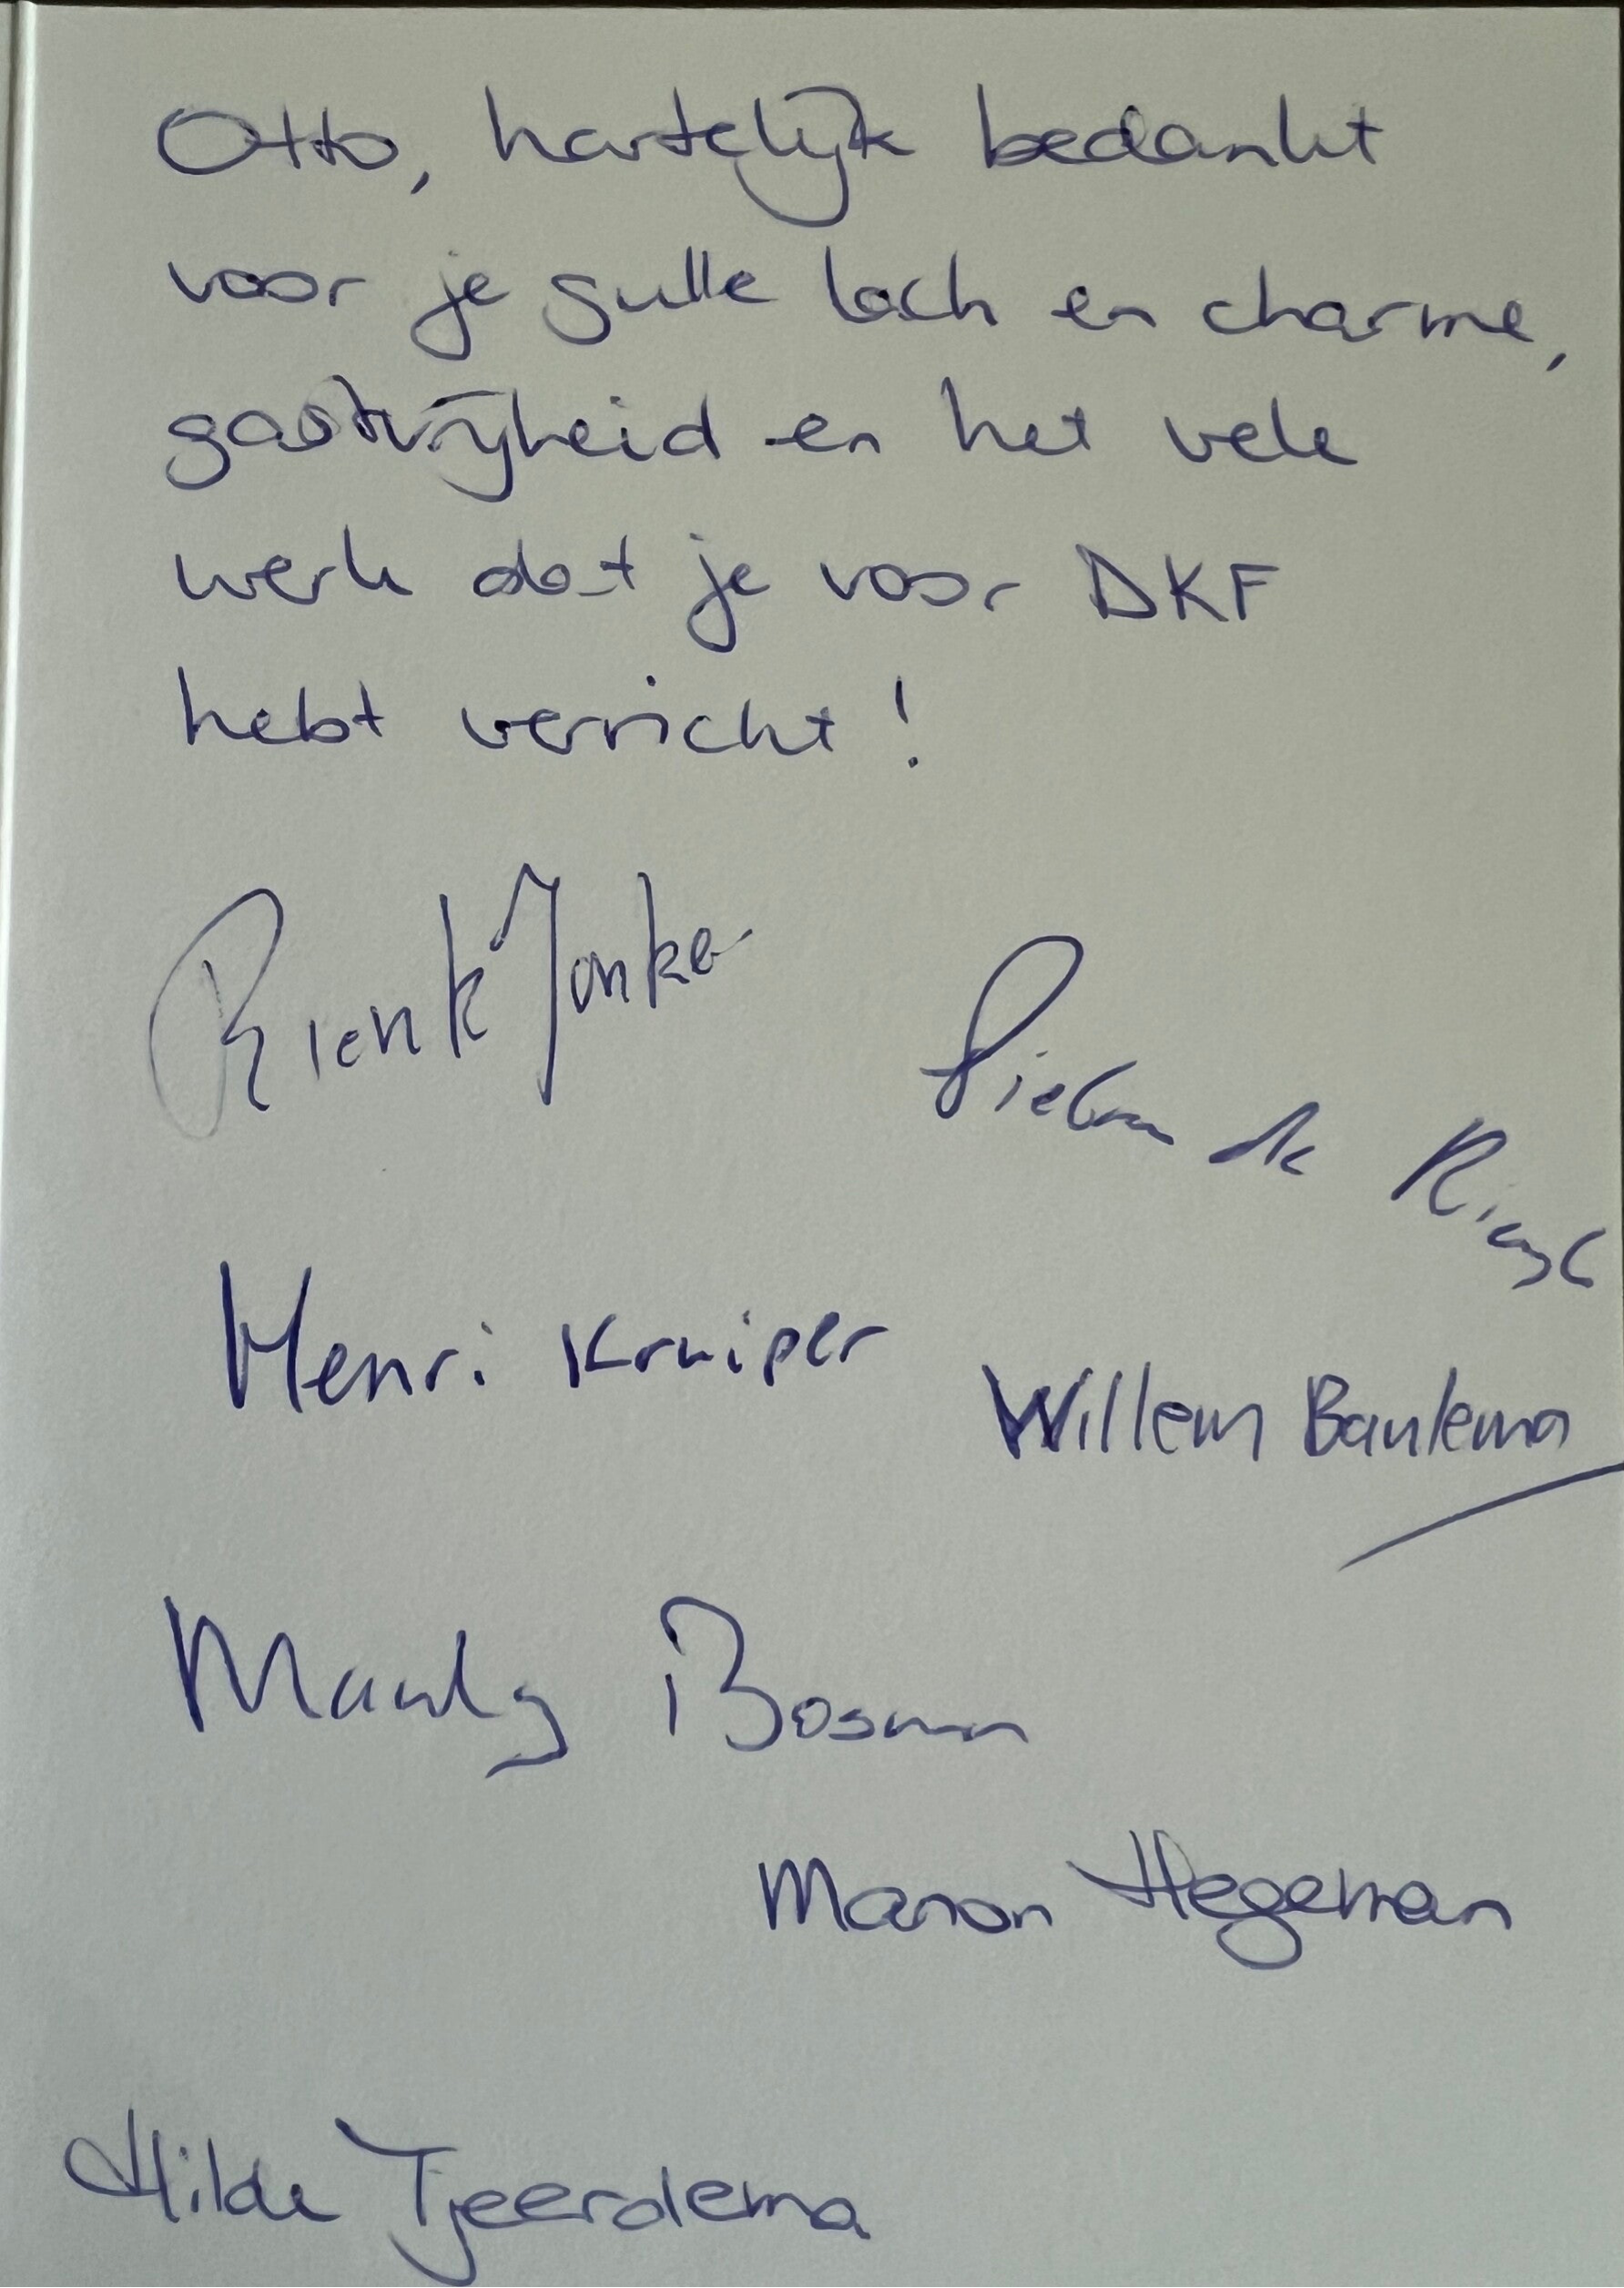 Otto, hartelijk bedankt
voor je gulle lach en charme,
gastvrijheid en het vele
werk dat je voor DKF
hebt verricht!
Rienk Jonker
de
Henri Kruiper
Willem Baulema
Bosman
Manon Hegeman
Hilde Tjeerdema